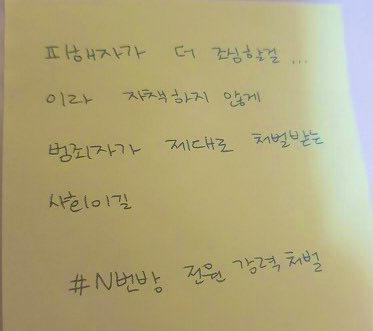 피해자가 더 조심할걸...
이라 자책하지 않게
범죄자가 제대로 처벌받는
사회이길
#N번방 전원 강력처벌